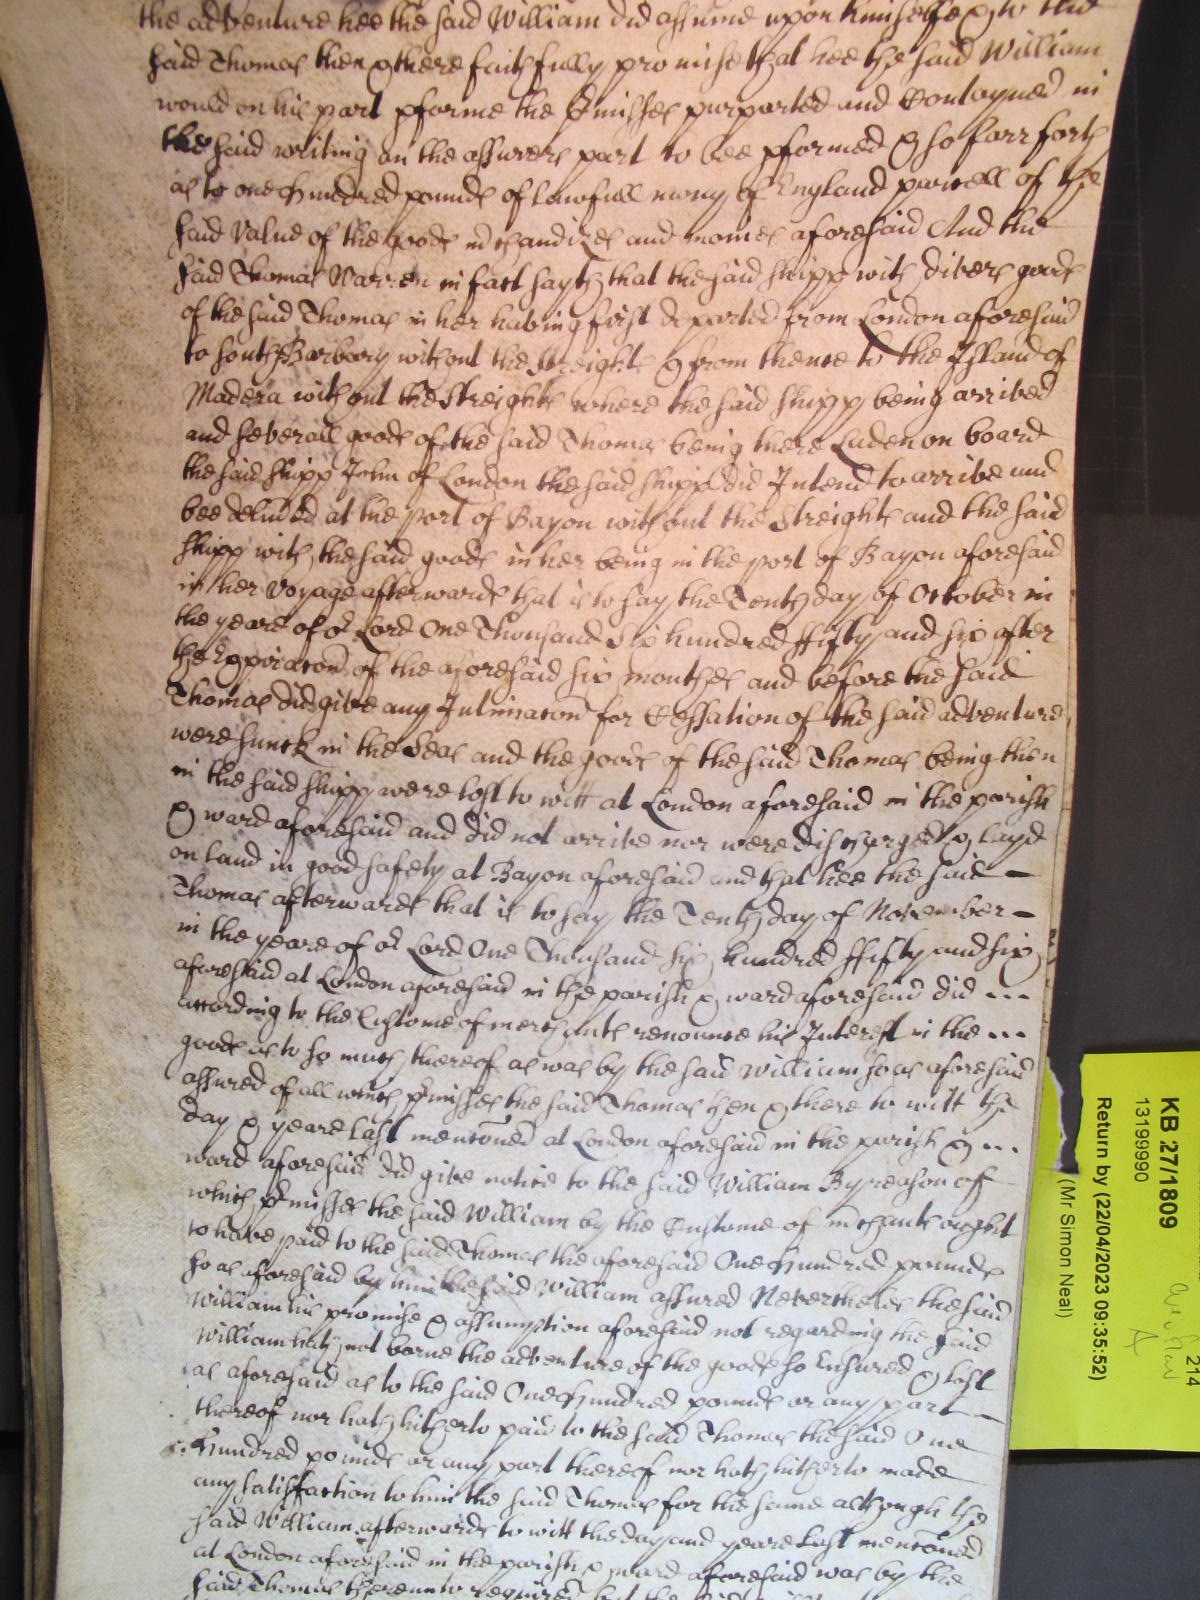 the adventure hee the said William did assume upon himselfe & to the
said Thomas then & there faithfully promise that hee the said William
would on his part pforme the pmisses purported and Contayned in
the said writing on the assurers part to bee pformed & so farr forth
as to one hundred pounds of lawfull mony of England parcell of the
said value of the goods mchandizes and monies aforesaid And the
said Thomas Warren in fact sayth that the said shipp with divers goods
of the said Thomas in her having first departed from London aforesaid
to South Barbary without the Streights & from thence to the Island of
Madera without the Streights where the said shipp being arrived
and severall goods of the said Thomas being there Laden on board
the said shipp John of London the said shipp did Intend to arrive and
bee delived at the port of Bayon without the Streights and the said
shipp with the said goods in her being in the port of Bayon aforesaid
in her voyage afterwards that is to say the Tenth day of October in
the yeare of or Lord One Thousand Six hundred ffifty and six after
the Expiracon of the aforesaid six monthes and before the said
Thomas did give any Intimacon for Cessation of the said adventure
were sunck in the Seas and the goods of the said Thomas being then
in the said shipp were lost to witt at London aforesaid in the parish
& ward aforesaid and did not arrive nor were discharged & layd
on land in good safety at Bayon aforesaid and that hee the said
Thomas afterwards that is to say the Tenth day of November
in the yeare of or Lord One Thousand six hundred ffifty and six
aforesaid at London aforesaid in the parish & ward aforesaid did ...
according to the Custome of merchants renounce his Interest in the ...
goods as to so much thereof as was by the said William so as aforesaid
assured of all which pmisses the said Thomas then & there to witt the
day & yeare last menconed at London aforesaid in the parish & ...
ward aforesaid did give notice to the said William By reason of
which pmisses the said William by the Custome of mchants ought
to have paid to the said Thomas the aforesaid One hundred pounds
so as aforesaid by him the said William assured Neverthelesse the said
William his promise & assumption aforesaid not regarding the said
William hath not borne the adventure of the goods so Ensured & lost
as aforesaid as to the said One hundred pounds or any part
thereof nor hath hitherto paid to the said Thomas the said One
hundred pounds or any part thereof nor hath hitherto made
any satisfaction to him the said Thomas for the same although the
said William afterwards to witt the day and yeare last menconed
at London aforesaid in the parish & ward aforesaid was by the
said Thomas thereunto required but the said
KB 27/1809
13199990
Return by (22/04/2023 09:35:52)
(Mr Simon Neal)
A
214